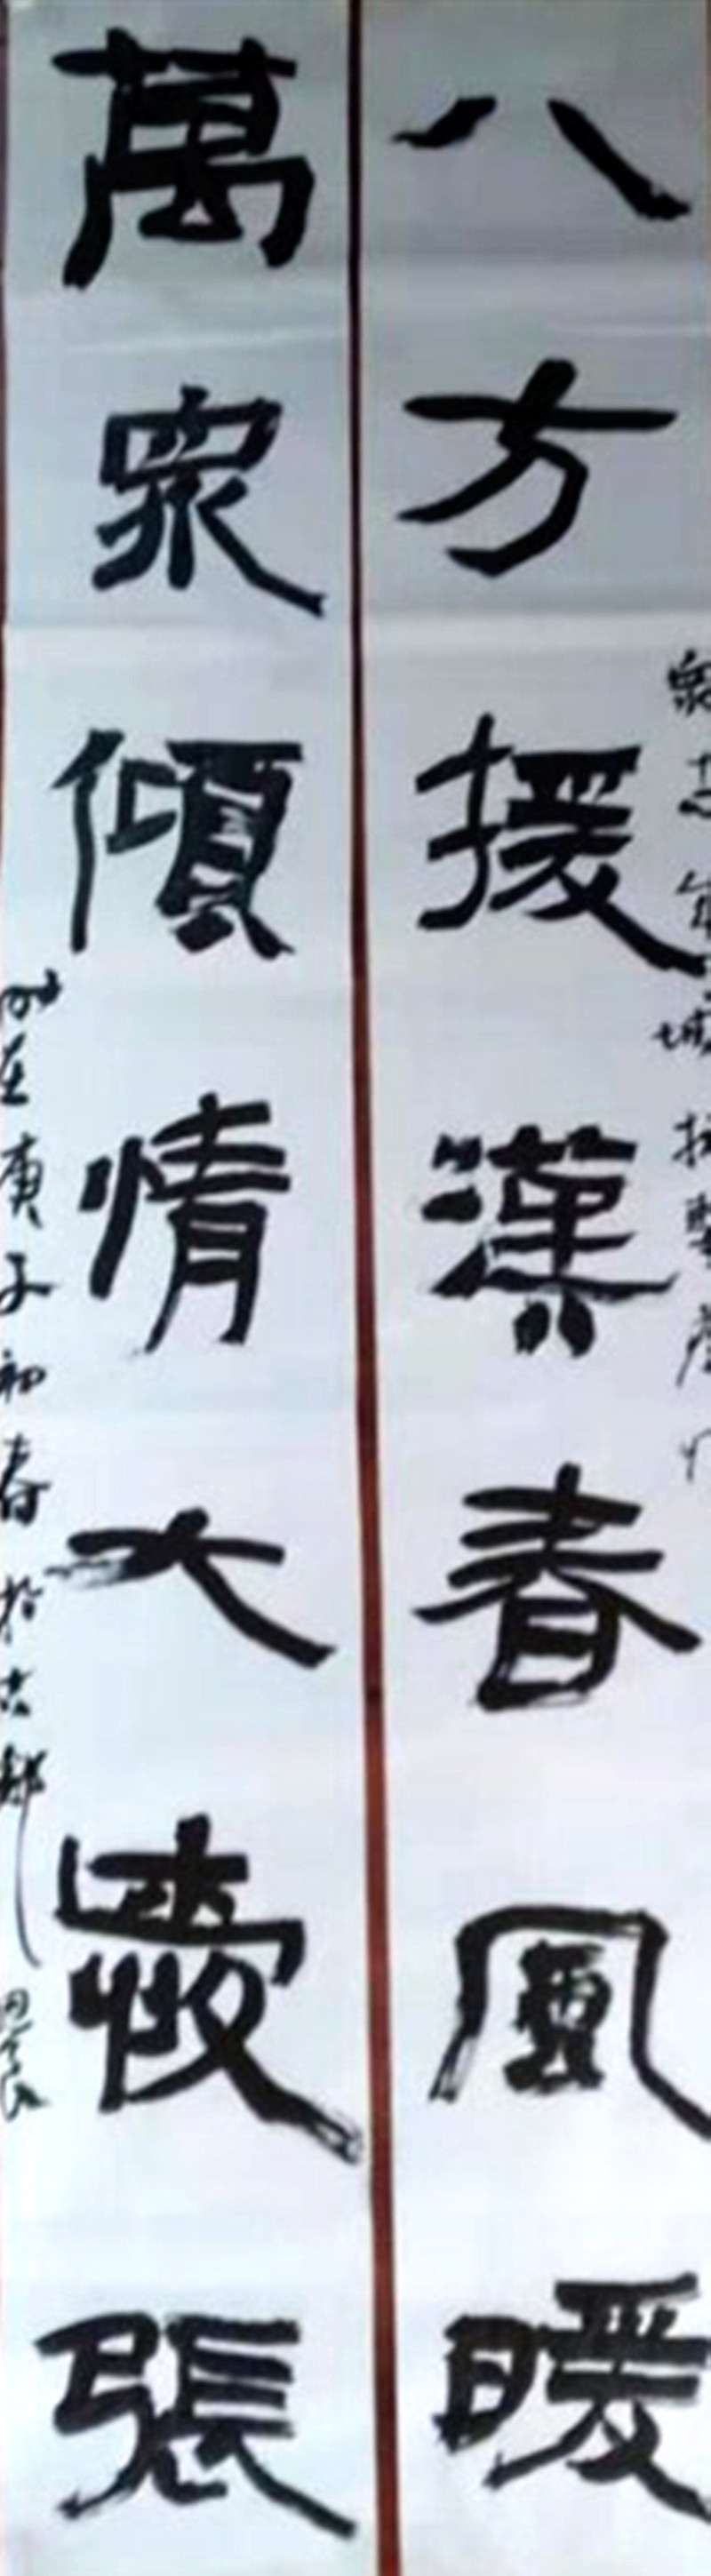 八方援漢春風暖
萬眾傾情大愛張
庚子初春於古鄴